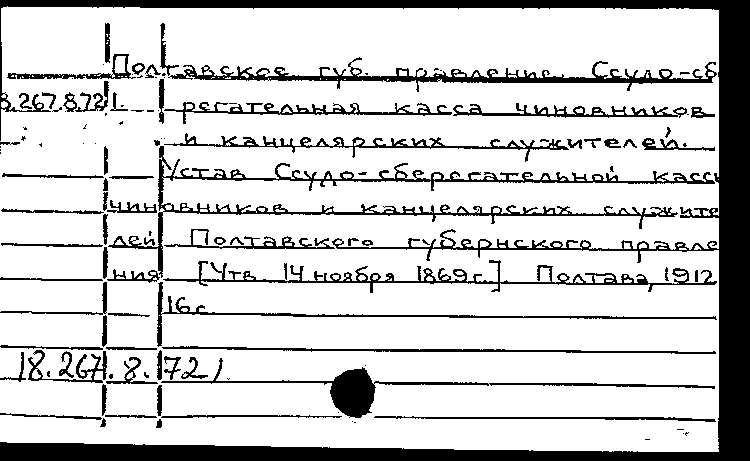 Полтавское губ. правление. Ссудо-сб
8.267.8.721. регательная касса чиновников
и канцелярских служителей.
Устав Ссудо-сберегательной касс
чиновников и канцелярских служите
лей Полтавского губернского правле
ния [Утв. 14 ноября 1869 г.]. Полтава, 1912
16 с.
18.267.8.721